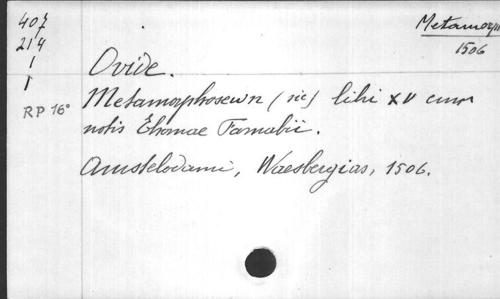 407
214
1
1
RP 16°
Metamorph
1506
Ovide.
Metamorphosewn (sic) libi XV cum
notis Thomae Farnabii.
Amstelodami, Waesbergias, 1506.